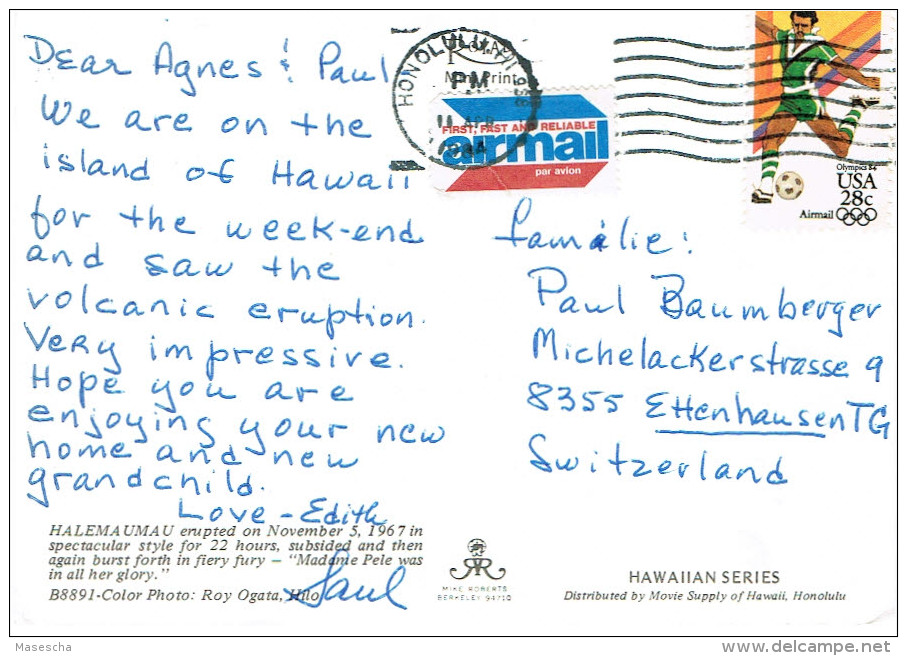 Dear Agnes & Paul
We are on the
island of Hawaii
for the week-end
and saw the
volcanic eruption.
Very impressive.
Hope you are
enjoying your new
home and new
grandchild.
Love - Edith
HALEMAUMAU erupted on November 5, 1967 in
spectacular style for 22 hours, subsided and then
again burst forth in fiery fury – "Madame Pele was
in all her glory."
B8891-Color Photo: Roy Ogata, Hilo
HONOLULU, HI
PM
11 APR
1984
FIRST, FAST AND RELIABLE
airmail
par avion
Olympics 84
USA
28c
Airmail
Familie:
Paul Baumberger
Michelackerstrasse 9
8355 Ettenhausen TG
Switzerland
MIKE ROBERTS
BERKELEY 94710
HAWAIIAN SERIES
Distributed by Movie Supply of Hawaii, Honolulu
Masescha
delcampe.net